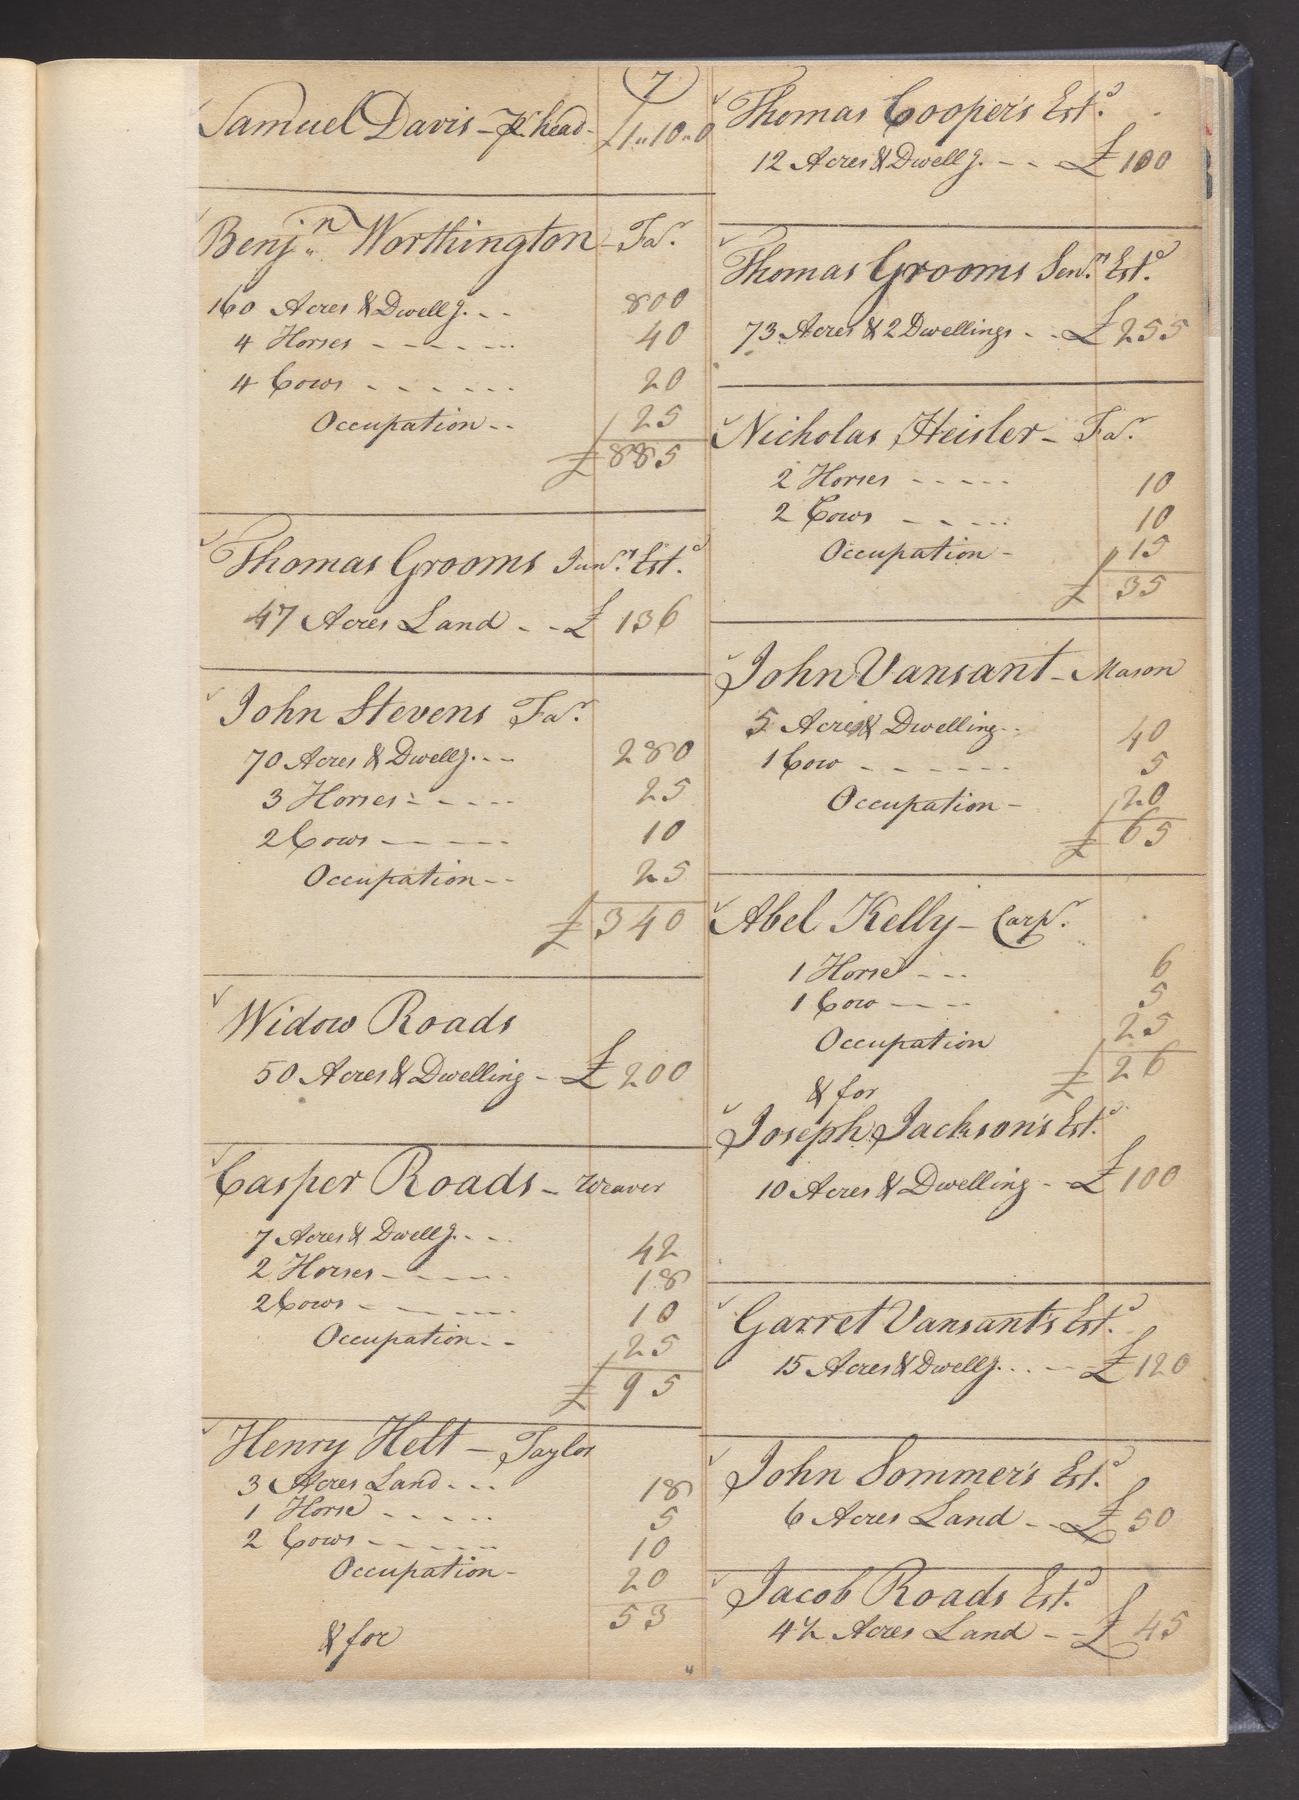 7
Samuel Davis - pr head - £1..10..0
Benjn. Worthington - Far.
160 Acres & Dwellg. - - 800
4 Horses - - - - - 40
4 Cows - - - - - 20
Occupation - - 25
£ 885
Thomas Grooms Junr. Estd.
47 Acres Land - - £ 136
John Stevens Far.
70 Acres & Dwellg. - - 280
3 Horses - - - - 25
2 Cows - - - - 10
Occupation - - 25
£ 340
Widow Roads
50 Acres & Dwelling - £ 200
Casper Roads - Weaver
7 Acres & Dwellg. - - 42
2 Horses - - - - 18
2 Cows - - - - 10
Occupation - - 25
£ 95
Henry Helt - Taylor
3 Acres Land - - - 18
1 Horse - - - - 5
2 Cows - - - - 10
Occupation - 20
53
& for
Thomas Cooper's Estd.
12 Acres & Dwellg. - - £ 100
Thomas Grooms Senr. Estd.
73 Acres & 2 Dwellings - - £ 255
Nicholas Heisler - Far.
2 Horses - - - - - 10
2 Cows - - - - 10
Occupation - 15
£ 35
John Vansant - Mason
5 Acres & Dwelling - - 40
1 Cow - - - - - - 5
Occupation - 20
£ 65
Abel Kelly - Carpr.
1 Horse - - - 6
1 Cow - - - - 5
Occupation 25
£ 26
& for
Joseph Jackson's Estd.
10 Acres & Dwelling - - £ 100
Garret Vansant's Estd.
15 Acres & Dwellg. - - - £ 120
John Sommer's Estd.
6 Acres Land - - £ 50
Jacob Roads Estd.
4½ Acres Land - - £ 45